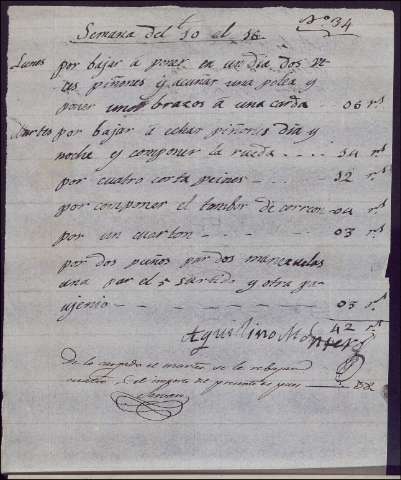 Nº 34
Semana del 10 al 16
Lunes por bajar á poner en un dia dos ve
ces piñones y acuñar una polea y
poner unos brazos a una carda 06 rs
Martes por bajar á echar piñones dia y
noche y componer la rueda 14 rs
por cuatro corta peines 12 rs
por componer el tambor de correon 04 rs
por un cuarton 03 rs
por dos puños por dos manzuelas
una par el 5 surtido y otra pa
ujenio 03 rs
42 rs
Aquilino
De lo cargado el martes se le rebajan
cuatro el importe de